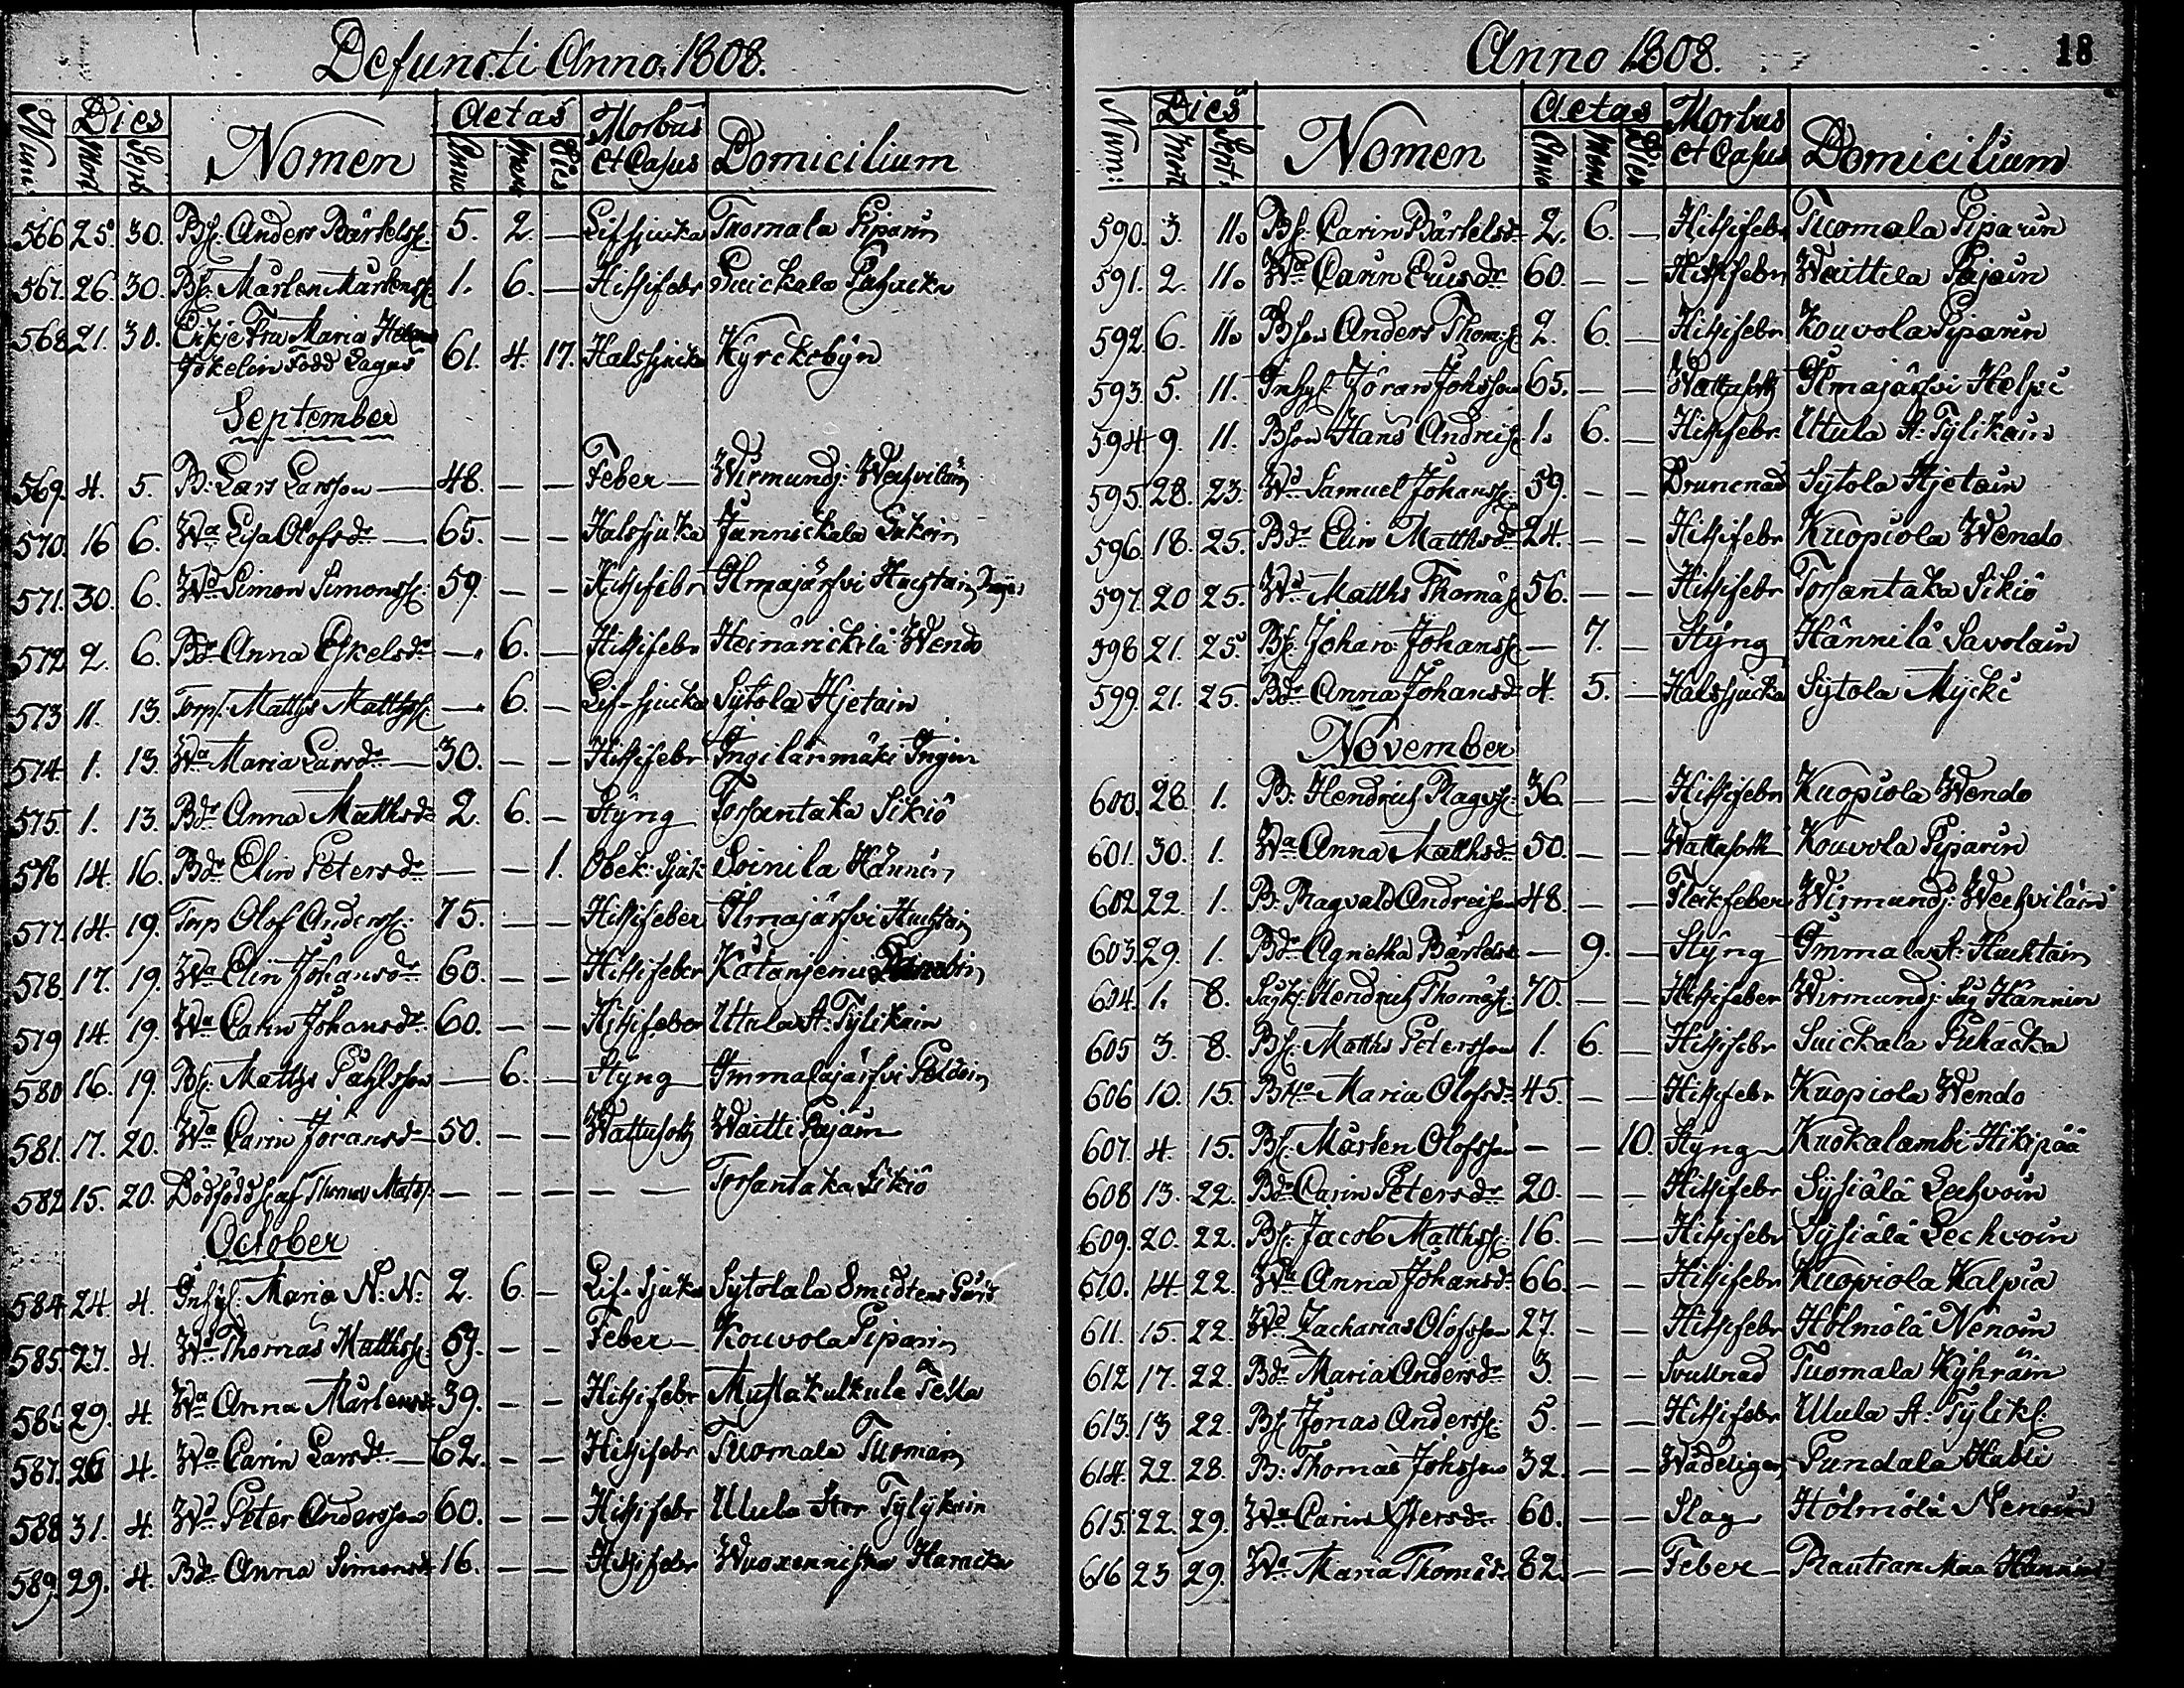 Defuncti Anno 1808.
Num: Dies Nomen Aetas Morbus Domicilium
Mort Sept Anno Mens Dies et Casus
566. 25. 30. Bs: Anders Bärtelss: 5. 2. — Lifsjucka Tuomala Piparin
567. 26. 30. Bs: Mårten Mårtenss: 1. 6. — Hitsifebr Suickala
568. 21. 30. Enkje Fru Maria
född Lagus 61. 4. 17. Halssjucka Kyrckobyn
September
569. 4. 5. B: Lars Larsson — 48. — — Feber — Wirmundj: Wechviläin
570. 16 6. Wa Lisa Olofsdr — 65. — — Halssjucka Jännickala
571. 30. 6. Wd Simon Simonss: 59. — — Hitsifebr Ilmajärfvi Huchtain
572. 2. 6. Bdr Anna Eskelsdr — 6. — Hitsifebr Heinärickilä Wendo
573 11. 13. Torp: Matths Matthss: — 6. — Lif-sjucka Sytola Hjetain
574. 1. 13. Wa Maria Larsdr — 30. — — Hitsifebr Ingilänmäki Ingin
575. 1. 13. Bdr Anna Matthsdr 2. 6. — Styng Torsantaka Sikiö
576 14. 16. Bdr Elin Petersdr — — 1. Obek: Sjuk: Soinila Hännin
577. 14. 19. Torp Olof Anderss: 75. — — Hitsifeber Ilmajärfvi Huchtain
578. 17. 19. Wa Elin Johansdr 60. — — Hitsifeber
579 14. 19. Wa Carin Johansdr 60. — — Hitsifeber Utula A: Tylikäin
580 16. 19. Bs: Matths Påhlsson — 6. — Styng Immalajärfvi
581. 17. 20. Wa Carin Jöransdr 50. — — Wattusott Waitti Pajain
582 15. 20. Dödfödd s: af Thomas Matss: — — — — — Torsantaka Sikiö
October
584. 24. 4. Inhys: Maria N: N: 2. 6. — Lif-sjuka Sytolala Smidtens
585. 27. 4. Wd Thomas Matthss: 59. — — Feber — Kouvola Piparin
586. 29. 4. Wa Anna Mårtensdr 39. — — Hitsifebr Tella
587. 26 4. Wa Carin Larsdr — 62. — — Hitsifebr Tuomala Tuomain
588 31. 4. Wd Peter Andersson 60. — — Hitsifebr Utula Stor Tylykäin
589. 29. 4. Bdr Anna Simonsdr 16. — — Hitsifebr Wuoxenniska
Anno 1808. 18
Num: Dies Nomen Aetas Morbus Domicilium
Mort Sept: Anno Mens Dies et Casus
590. 3. 11. Bs: Carin Bärtelsdr 2. 6. — Hitsifebr Tuomala Piparin
591. 2. 11. Wa Carin Ericsdr 60. — — Hitsifebr Waittila Pajain
592. 6. 11. Bson Anders Thom:s: 2. 6. — Hitsifebr Kouvola Piparin
593. 5. 11. Inhys: Jöran Johsson 65. — — Wattusott Ilmajärfvi
594 9. 11. Bson Hans Andreis: 1. 6. — Hitsifebr Utula A: Tylikäin
595. 28. 23. Wd Samuel Johanss: 59. — — Drunknad Sytola Hjetain
596. 18. 25. Bdr Elin Matthsdr 24. — — Hitsifebr Kuopiola Wendo
597. 20 25. Wd Matths Thomäs: 56. — — Hitsifebr Torsantaka Sikiö
598 21. 25. Bs: Johan Johanss: — 7. — Styng Hännilä Savolain
599. 21. 25. Bdr Anna Johansdr 4. 5. — Halssjucka Sytola Mycki
November
600. 28 1. B: Hendrich Ragvs: 36. — — Hitsifebr Kuopiola Wendo
601. 30. 1. Wa Anna Matthsdr 50. — — Wattusott Kouvola Piparin
602 22. 1. B: Ragvald Andreison 48. — — Fleckfeber Wirmundj: Wechviläin
603 29. 1. Bdr Agnetha Bärtelsdr — 9. — Styng Immala A: Huchtain
604. 1. 8. Hendrich Thomäs: 70. — — Hitsifeber Wirmundj: Hännin
605 3. 8. Bs: Matths Petersson 1. 6. — Hitsifebr Suickala Puhacka
606 10. 15. Maria Olofsdr 45. — — Hitsifebr Kuopiola Wendo
607. 4. 15. Bs: Mårten Olofsson — — 10. Styng Kuokalambi Hikipää
608 13. 22. Bdr Carin Petersdr 20. — — Hitsifebr Syhiälä Lechvoin
609. 20. 22. Bs: Jacob Matthss: 16. — — Hitsifebr Syhiälä Lechvoin
610. 14. 22. Wa Anna Johansdr 66. — — Hitsifebr Kuopiola Kalpia
611. 15. 22. Wd Zacharias Olofsson 27. — — Hitsifebr Hölmölä Nenoin
612 17. 22. Bdr Maria Andersdr 3. — — Svullnad Tuomala Kyhräin
613. 13 22. Bs: Jonas Anderss: 5. — — Hitsifebr Utula A: Tylik:
614. 22. 28. B: Thomas Johsson 32. — — Wådeligen
615. 22. 29. Wa Carin Petersdr 60. — — Slag Hölmölä Nenoin
616 23 29. Wa Maria Thomädr 82. — — Feber — Hännin